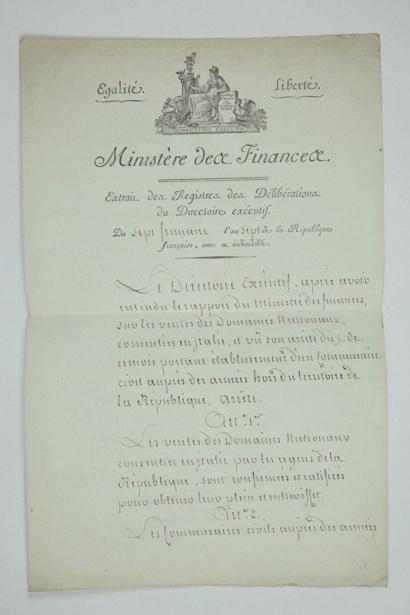 Egalité. Liberté.
DIRECTOIRE EXECUTIF
Ministère des Finances.
Extrait des Registres des Délibérations
du Directoire exécutif.
Du sept frimaire l'an sept de la République
française, une et indivisible.
Le Directoire Exécutif, après avoir
entendu le rapport du Ministre des finances,
sur les ventes des Domaines Nationaux,
consenties en Italie, et vû son arrêté du 5. de
ce mois portant établissement d'un Commissaire
civil auprès des armées hors du territoire de
la République, arrête.
Art. 1er.
Les ventes des Domaines Nationaux
consenties en Italie par les agens de la
République, sont confirmées et ratifiées
pour obtenir leur plein et entier effet.
Art. 2.
Les Commissaires civils auprès des armées